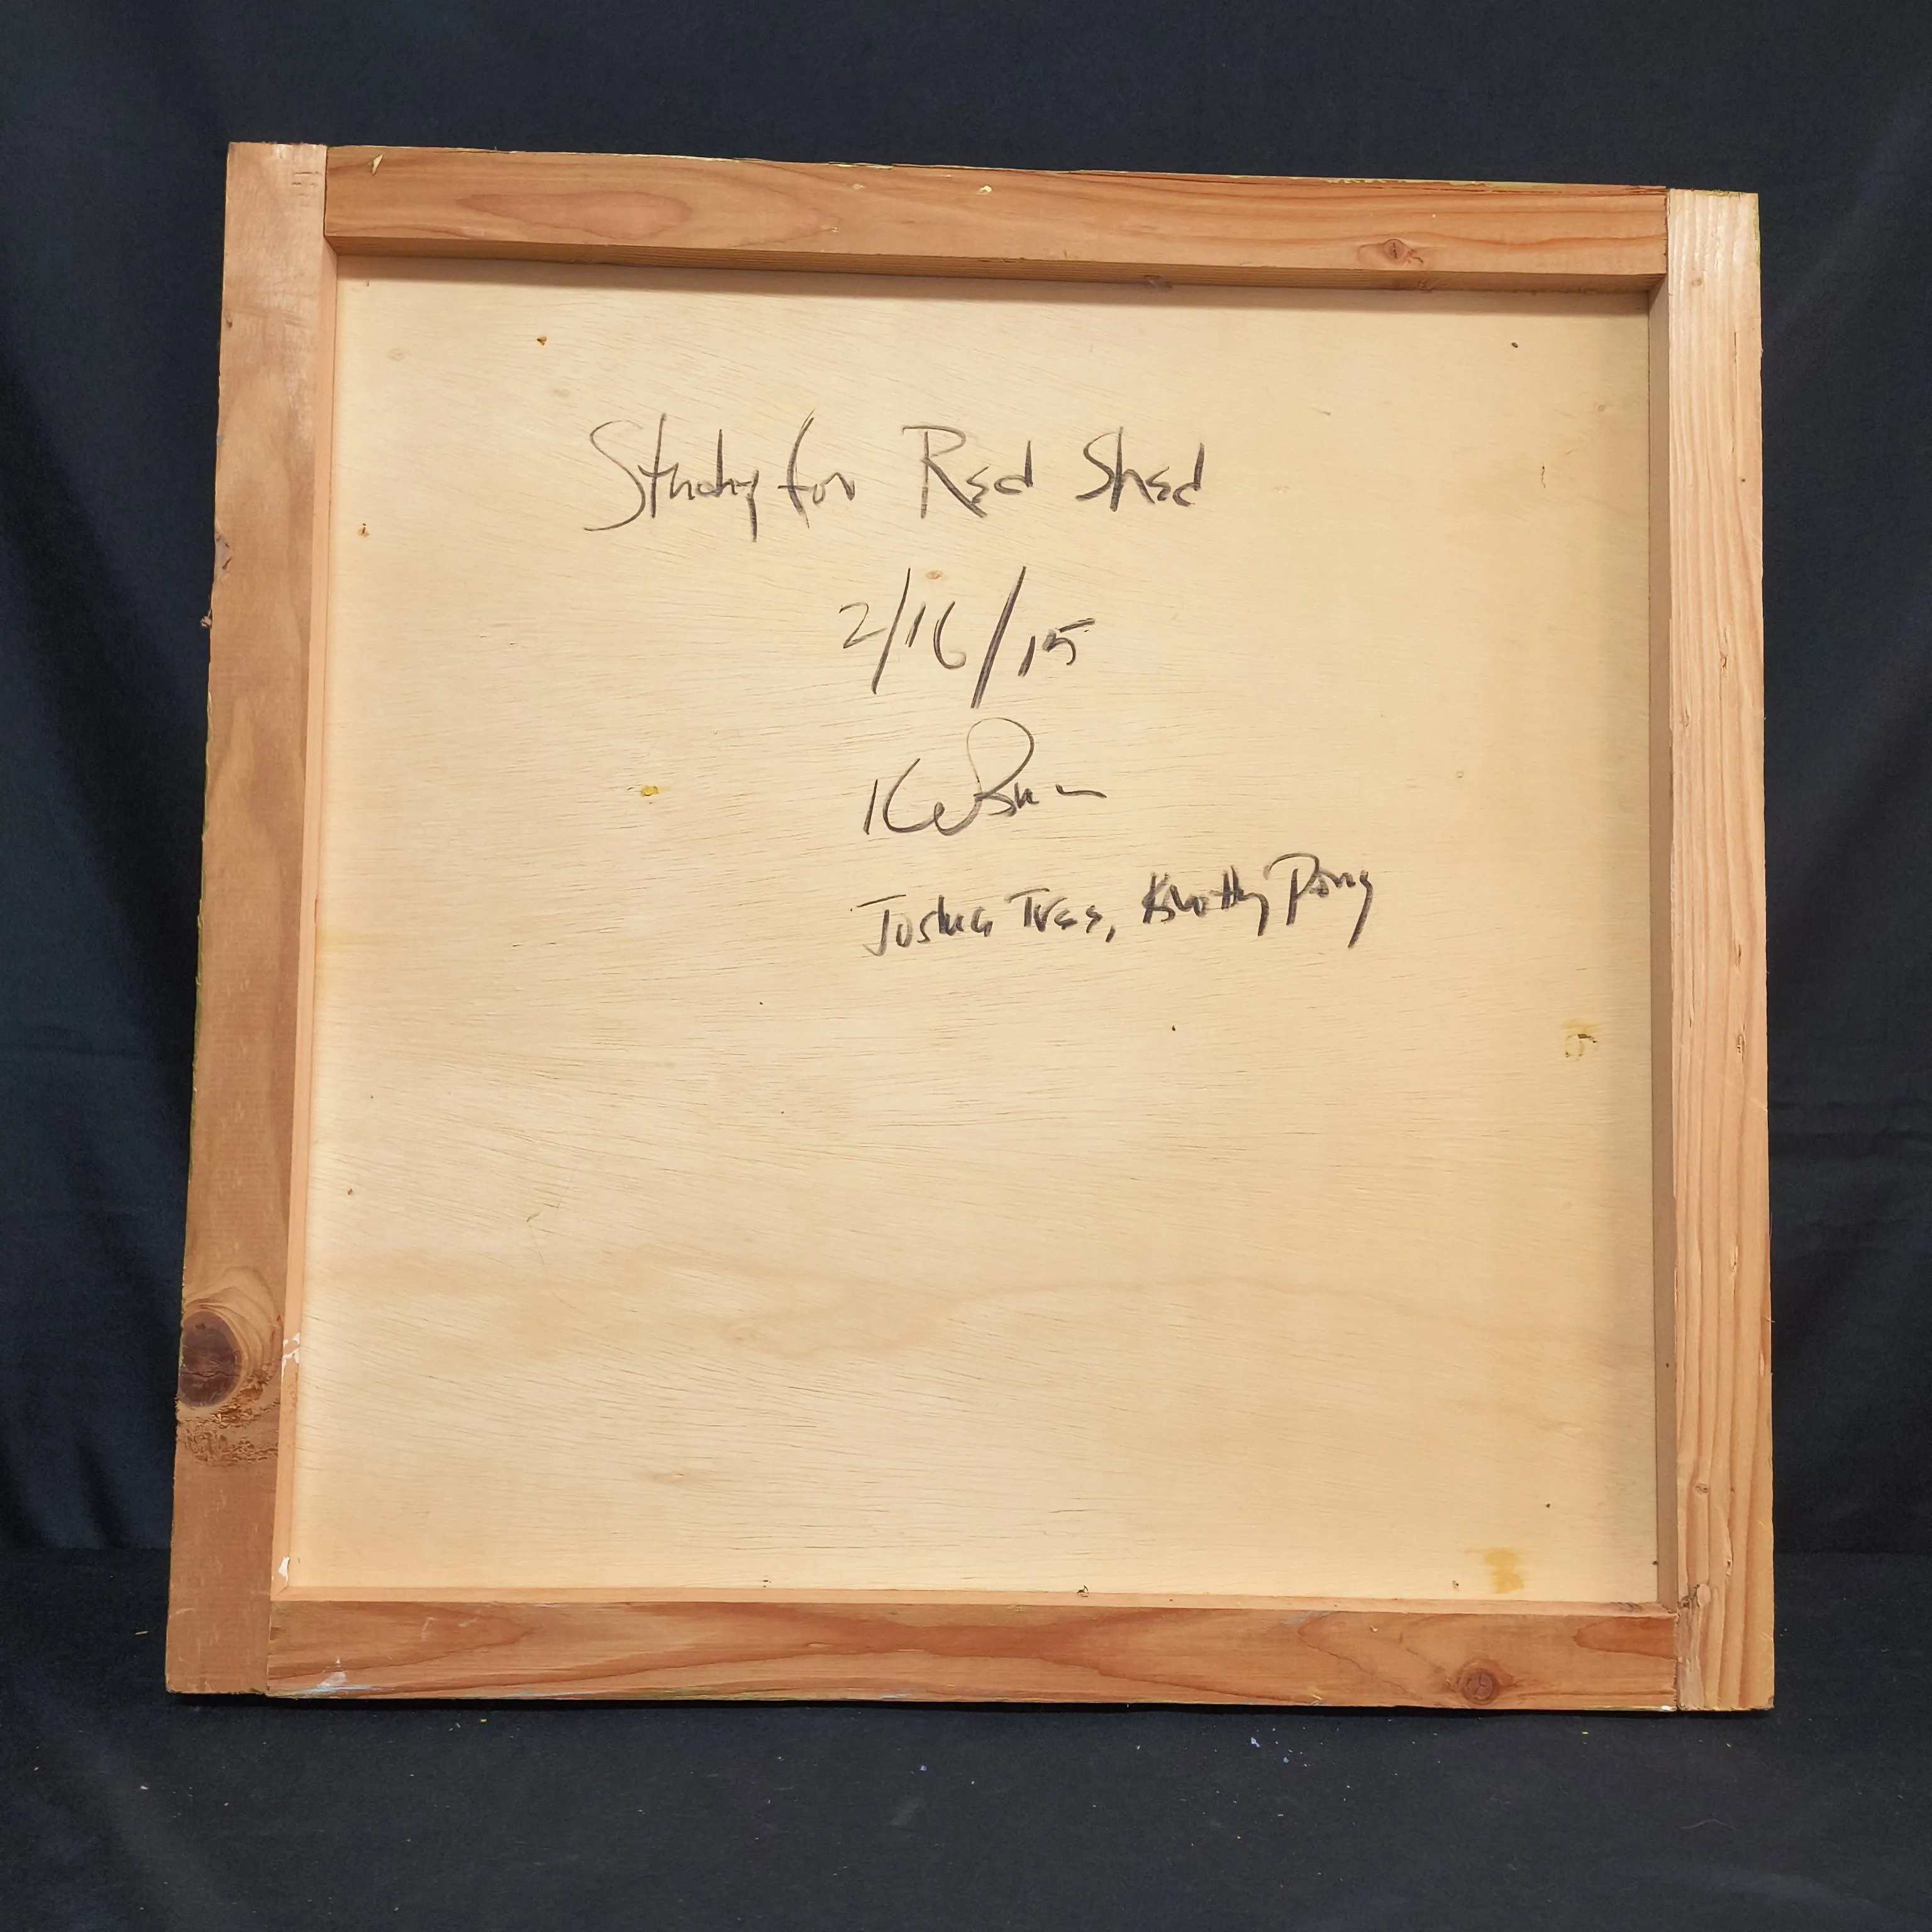 Study for Red Shed
2/16/15
Joshua Tree, Knotty Piney